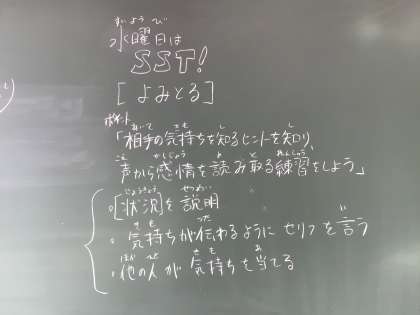 水曜日は
SST!
[よみとる]
ポイント
「相手の気持ちを知るヒントを知り、
声から感情を読み取る練習をしよう」
・[状況]を説明
・気持ちが伝わるようにセリフを言う
・他の人が気持ちを当てる